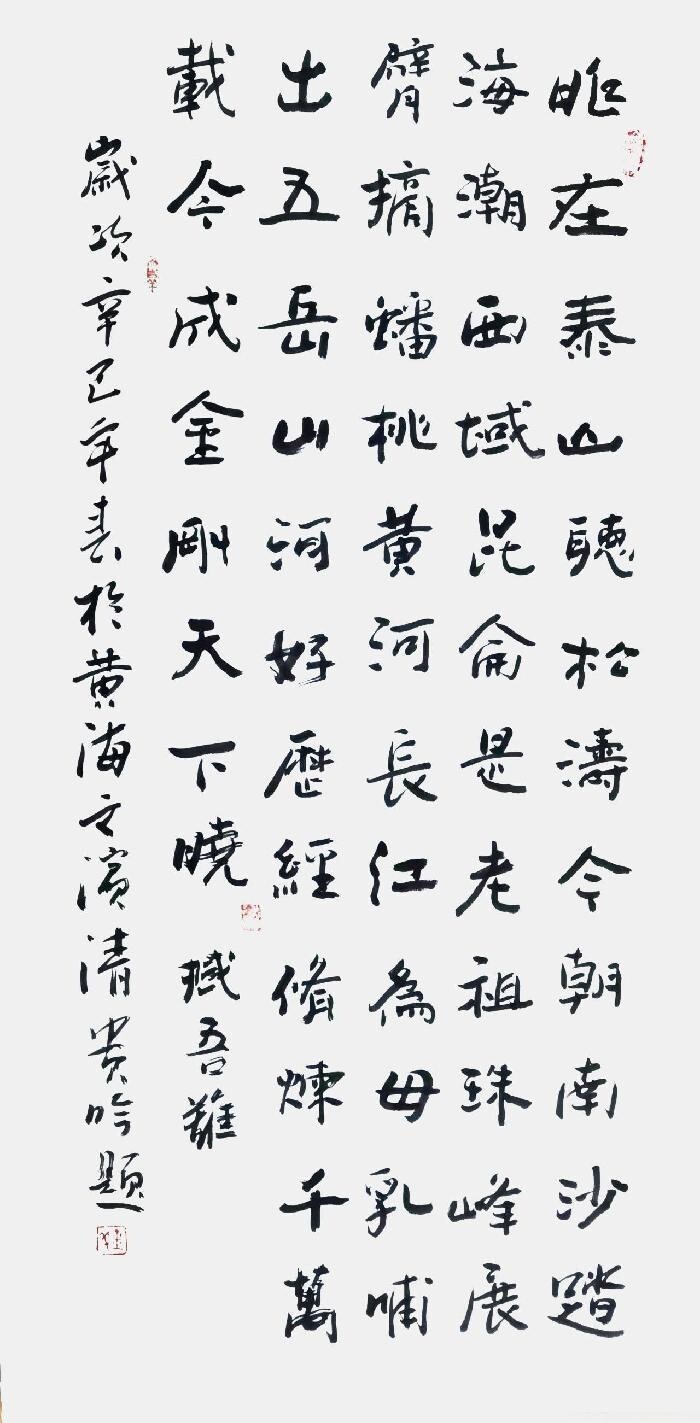 昨在泰山聽松濤今朝南沙踏
海潮西域昆侖是老祖珠峰展
臂摘蟠桃黄河長江爲母乳哺
出五岳山河好歷經脩煉千萬
載今成金剛天下曉 吾
歲次辛巳年春於黄海之濱清贵吟題